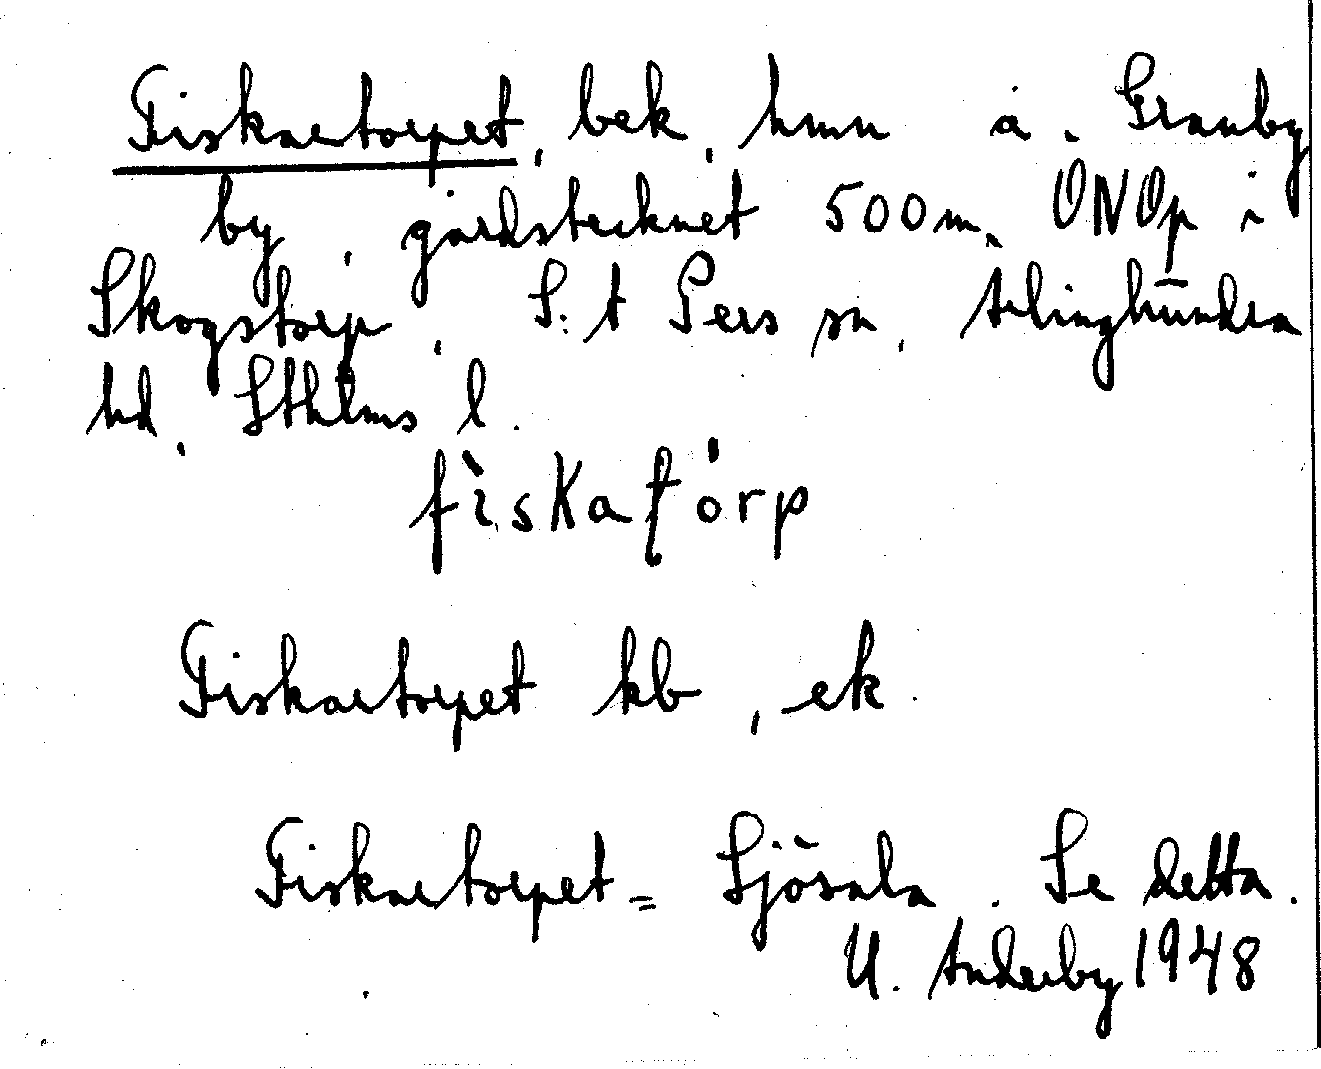 Fiskartorpet, bek, hmn å. Granby
by, gårdstecknet 500 m. ONOp i
Skogstorp, S:t Pers sn, Ärlinghundra
hd, Sthlms l.
fiskatorp
Fiskartorpet kb, ek.
Fiskartorpet = Sjösala. Se detta.
U. Anderby 1948